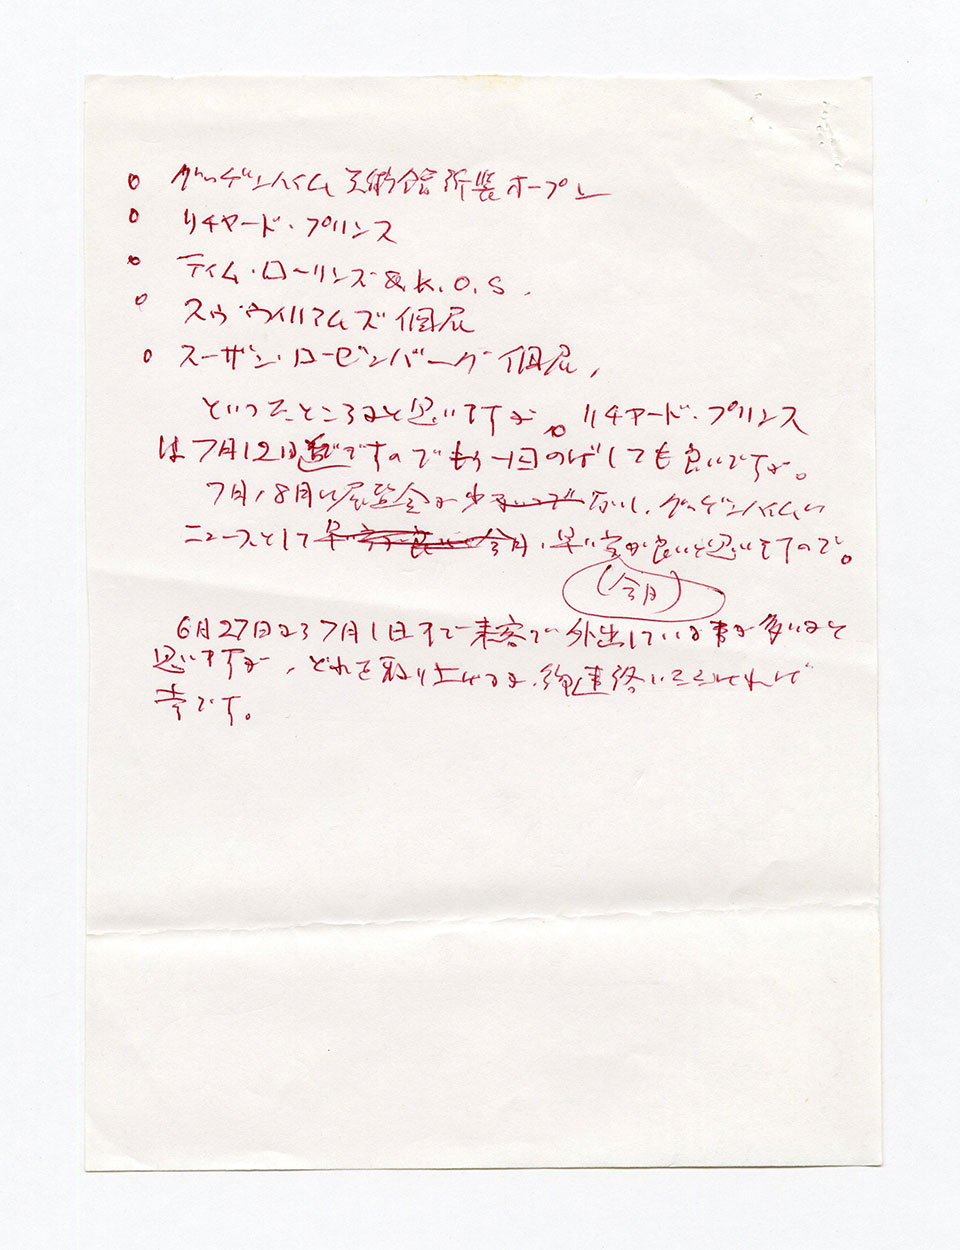 ○ グッゲンハイム美術館新装オープン
○ リチャード・プリンス
○ ティム・ローリンズ & K.O.S.
○ スゥ・ウイリアムズ個展
○ スーザン・ローゼンバーグ個展,
といったところかと思いますが。リチャード・プリンス
は7月12日迄ですのでもう一回のばしても良いですが。
7月、8月は展覧会が少ないし、グッゲンハイムは
ニュースとして早い方が良いと思いますので。
(今月)
6月27日から7月1日まで来客で外出している事が多いかと
思いますが、どれを取り上げるか、御連絡いただければ
幸です。